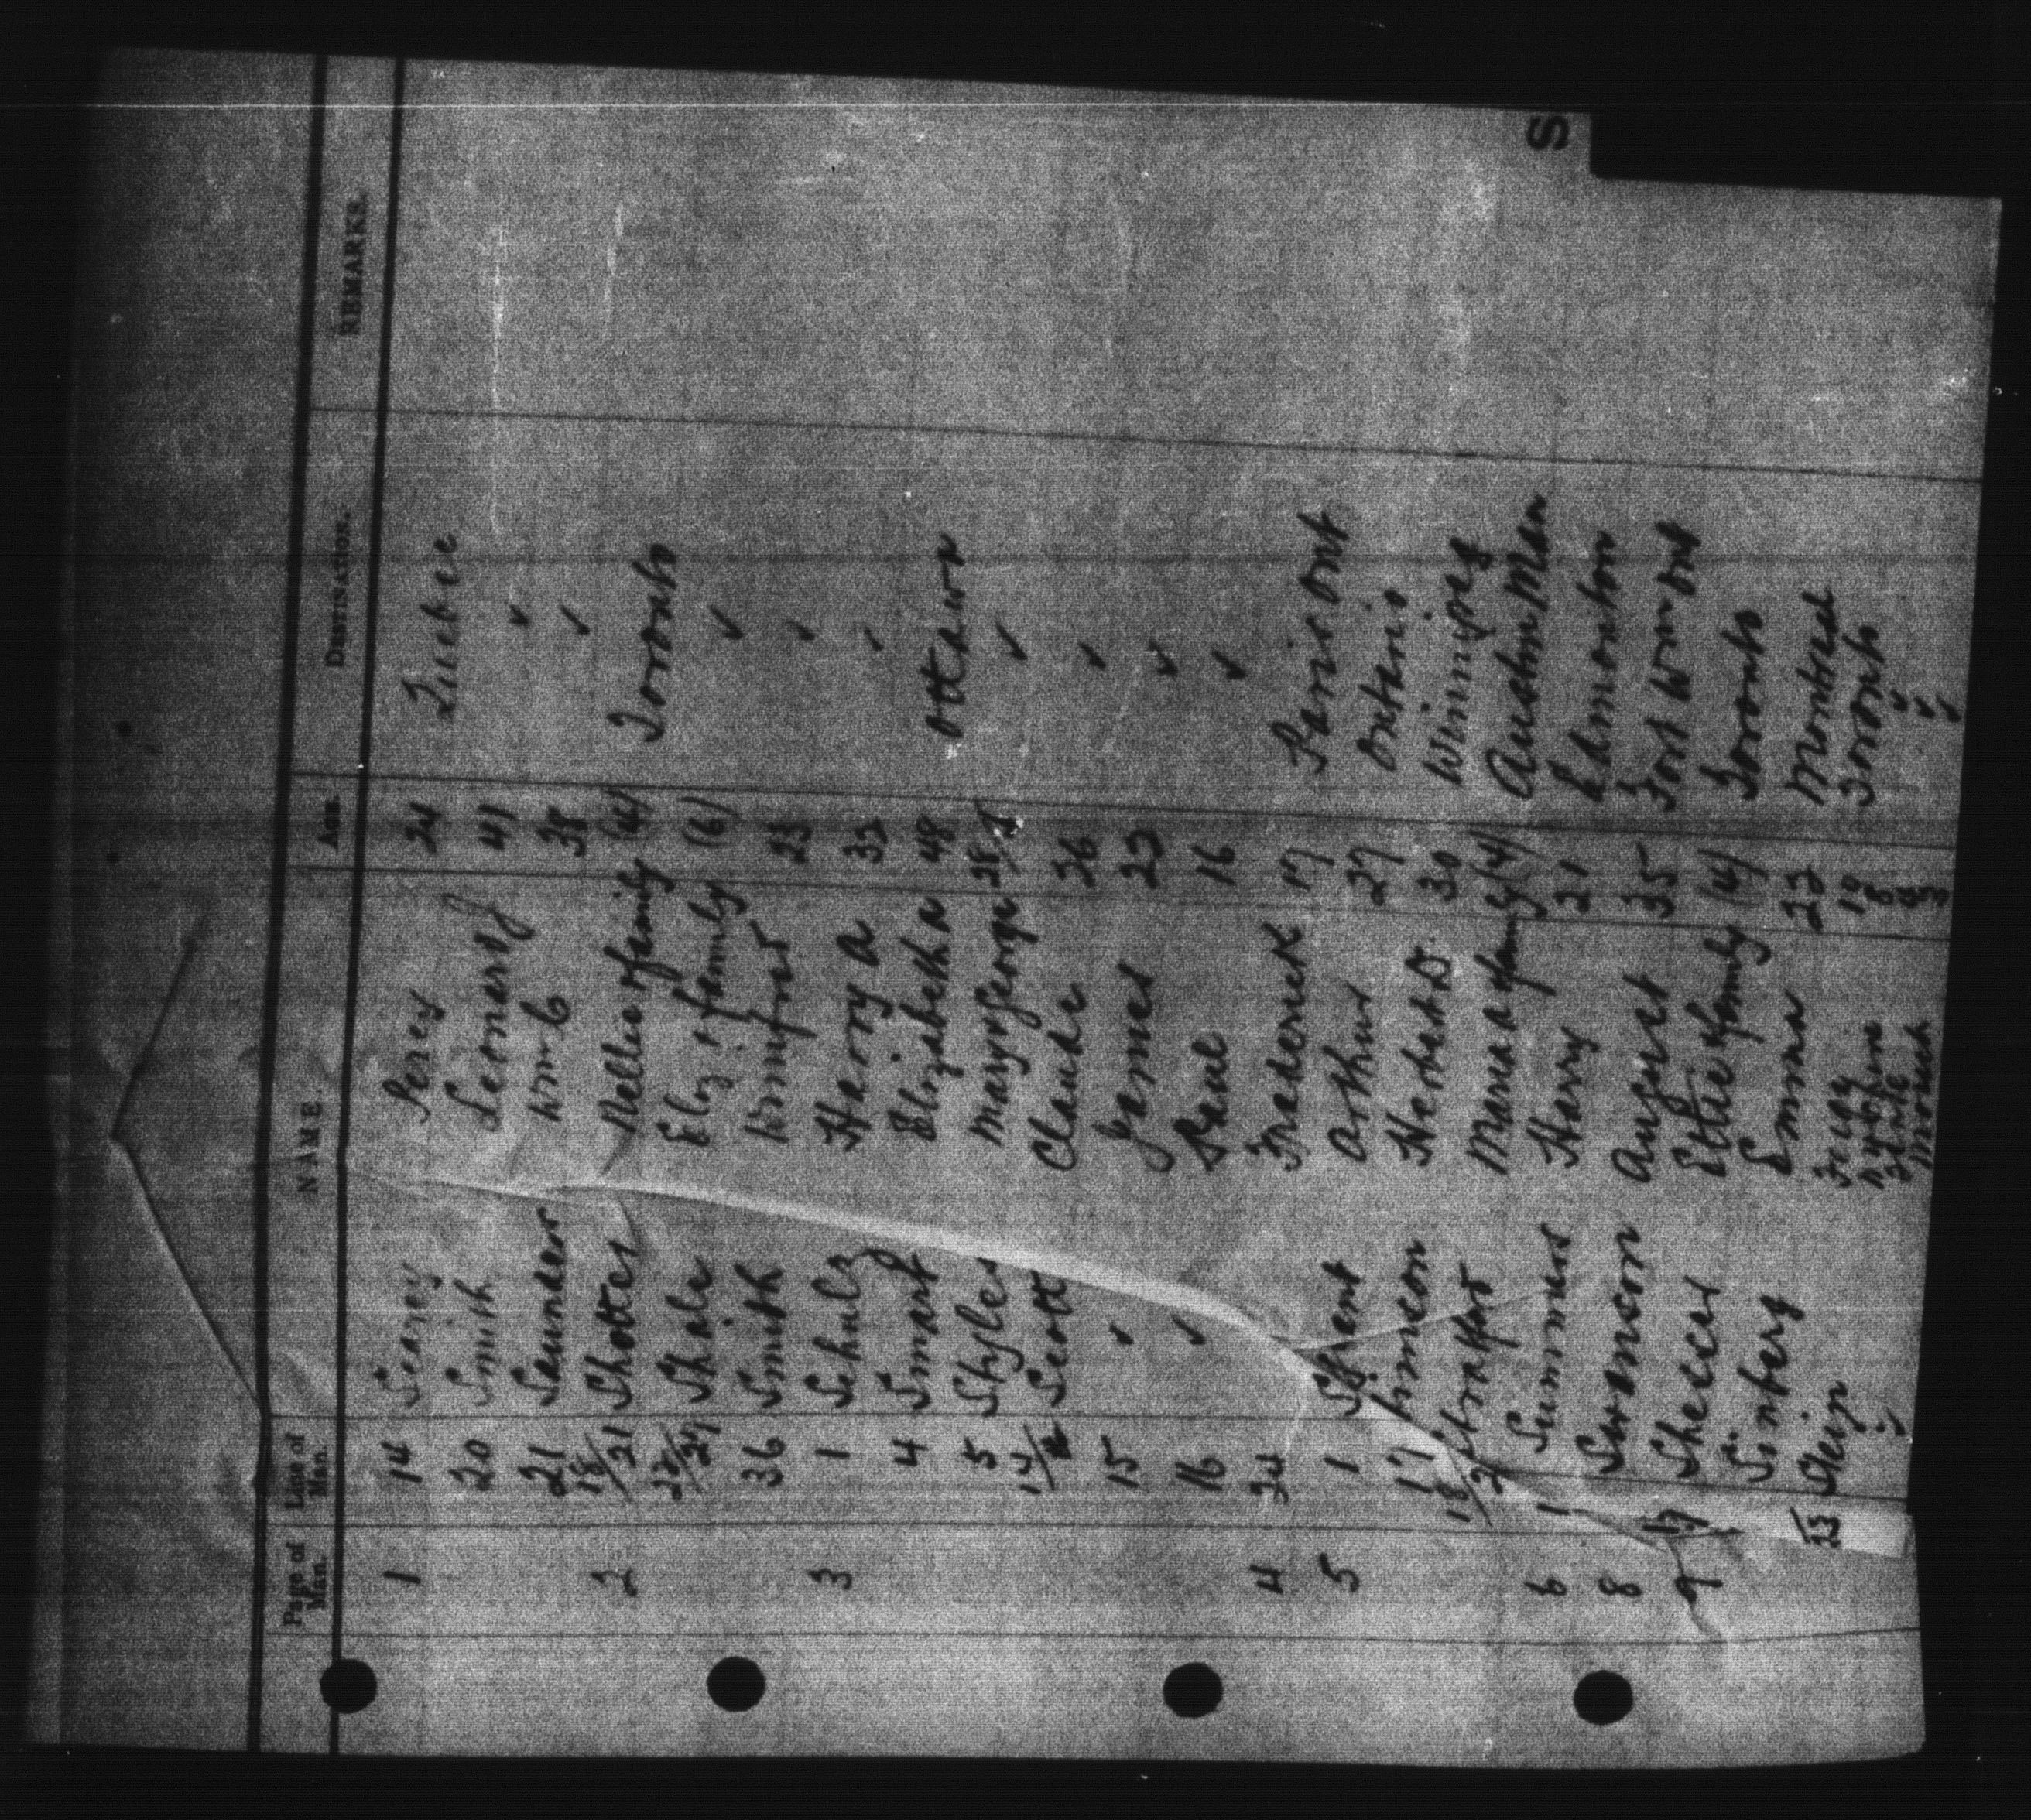 S
Page of Man. Line of Man. NAME. AGE. DESTINATION. REMARKS.
1 14 Searcy Percy 24 Quebec
20 Smith Leonard J 41 ✓
21 Saunders Wm C 38 ✓
2 18/21 Shotter Nellie & family (4) Toronto
22/27 Shale Eliz & family (6) ✓
36 Smith Winifred 23 ✓
3 1 Schulz Harry A 32 ✓
4 Smart Elizabeth A 48 Ottawa
5 Styles Mary & George 28/ ✓
14/ Scott Claude 26 ✓
15 ✓ James 23 ✓
16 ✓ 16 ✓
4 24 Frederick 17 Paris Ont
5 1 Arthur 27 Ontario
17 Simeon Herbert D. 30 Winnipeg
18/2 Maria & family (4) Austin Man
6 1 Summers Harry 21 Edmonton
8 Swanson August 35 Fort Wm Ont
9 17 Ettie & family (4) Toronto
Sinberg Emma 22 Montreal
23 10 Toronto
8 ✓
✓
✓